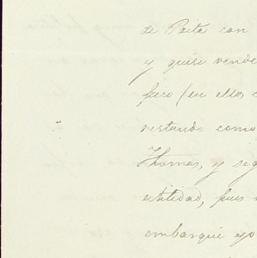 de Paita con
y quise vende
pero (en ellos
restando como
Thomas, y seg
utilidad, pues
embarqué